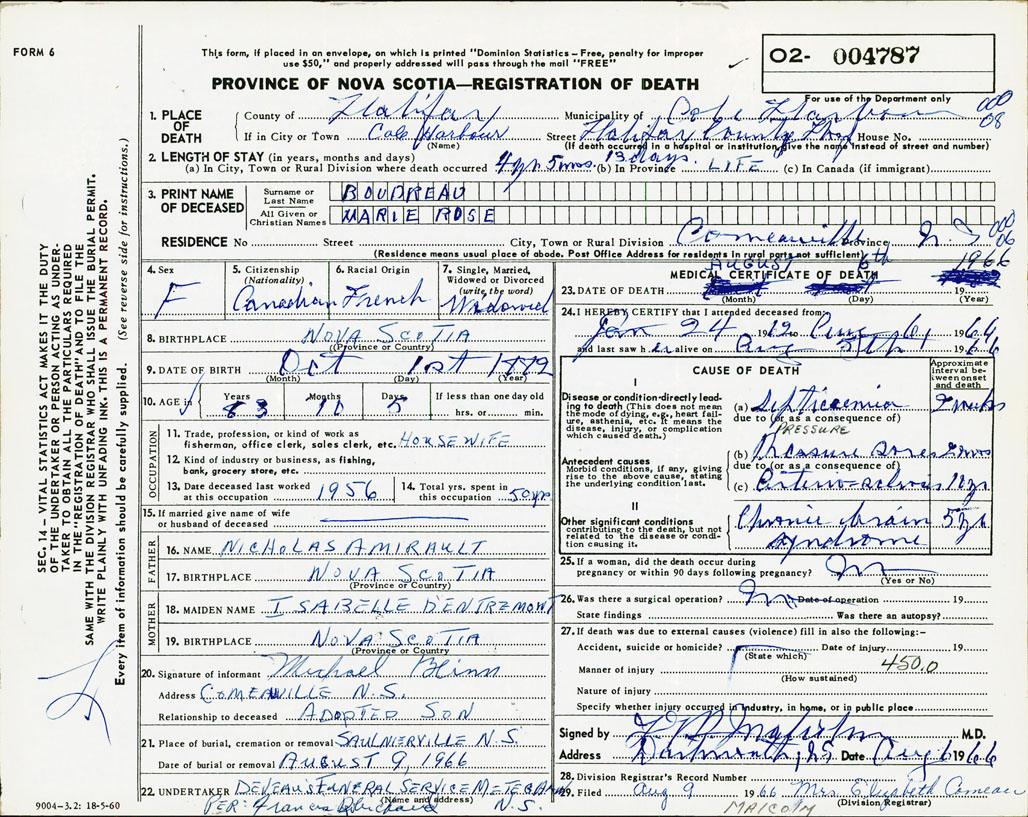 FORM 6
This form, if placed in an envelope, on which is printed "Dominion Statistics – Free, penalty for improper
use $50," and properly addressed will pass through the mail "FREE"
PROVINCE OF NOVA SCOTIA—REGISTRATION OF DEATH
O2- 004787
For use of the Department only
SEC. 14 – VITAL STATISTICS ACT MAKES IT THE DUTY
OF THE UNDERTAKER OR PERSON ACTING AS UNDER-
TAKER TO OBTAIN ALL THE PARTICULARS REQUIRED
IN THE "REGISTRATION OF DEATH" AND TO FILE THE
SAME WITH THE DIVISION REGISTRAR WHO SHALL ISSUE THE BURIAL PERMIT.
WRITE PLAINLY WITH UNFADING INK. THIS IS A PERMANENT RECORD.
Every item of information should be carefully supplied. (See reverse side for instructions.)
1. PLACE OF DEATH
County of Halifax Municipality of Cole Harbour 000 08
If in City or Town Cole Harbour Street Halifax County Hosp House No.
(Name) (If death occurred in a hospital or institution, give the name instead of street and number)
2. LENGTH OF STAY (in years, months and days)
(a) In City, Town or Rural Division where death occurred 4 yr. 5 mos. 13 days. (b) In Province LIFE (c) In Canada (if immigrant)
3. PRINT NAME OF DECEASED
Surname or Last Name BOUDREAU
All Given or Christian Names MARIE ROSE
RESIDENCE No Street City, Town or Rural Division Comeauville Province N.S 000 06
(Residence means usual place of abode. Post Office Address for residents in rural parts not sufficient)
4. Sex F
5. Citizenship (Nationality) Canadian
6. Racial Origin French
7. Single, Married, Widowed or Divorced (write the word) Widowed
8. BIRTHPLACE NOVA SCOTIA
(Province or Country)
9. DATE OF BIRTH Oct 1st 1882
(Month) (Day) (Year)
10. AGE in Years 83 Months 10 Days 5 If less than one day old
hrs. or min.
OCCUPATION
11. Trade, profession, or kind of work as
fisherman, office clerk, sales clerk, etc. HOUSEWIFE
12. Kind of industry or business, as fishing,
bank, grocery store, etc.
13. Date deceased last worked at this occupation 1956
14. Total yrs. spent in this occupation 50 yrs
15. If married give name of wife
or husband of deceased
FATHER
16. NAME NICHOLAS AMIRAULT
17. BIRTHPLACE NOVA SCOTIA
(Province or Country)
MOTHER
18. MAIDEN NAME ISABELLE D'ENTREMONT
19. BIRTHPLACE NOVA SCOTIA
(Province or Country)
20. Signature of informant Michael Blinn
Address COMEAUVILLE N.S.
Relationship to deceased ADOPTED SON
21. Place of burial, cremation or removal SAULNIERVILLE N.S.
Date of burial or removal AUGUST 9, 1966
22. UNDERTAKER DEVEAU'S FUNERAL SERVICE METEGHAN
(Name and address)
PER: Francis N.S.
9004–3.2: 18-5-60
MEDICAL CERTIFICATE OF DEATH
AUGUST 6th 1966
23. DATE OF DEATH 19
(Month) (Day) (Year)
24. I HEREBY CERTIFY that I attended deceased from:
Jan 24 1962 Aug 6, 1966
and last saw her alive on Aug 5th 1966
CAUSE OF DEATH
Approximate interval between onset and death
I
Disease or condition directly leading to death (This does not mean the mode of dying, e.g., heart failure, asthenia, etc. It means the disease, injury, or complication which caused death.)
(a) Septicaemia 2 weeks
due to (or as a consequence of)
PRESSURE
Antecedent causes
Morbid conditions, if any, giving rise to the above cause, stating the underlying condition last.
(b) Pressure sores 2 mos
due to (or as a consequence of)
(c) Arterio-sclerosis 10 yr
II
Other significant conditions contributing to the death, but not related to the disease or condition causing it.
Chronic brain syndrome 5 yr
25. If a woman, did the death occur during
pregnancy or within 90 days following pregnancy? No
(Yes or No)
26. Was there a surgical operation? No Date of operation 19
State findings Was there an autopsy?
27. If death was due to external causes (violence) fill in also the following:–
Accident, suicide or homicide? Date of injury 19
(State which)
Manner of injury 450.0
(How sustained)
Nature of injury
Specify whether injury occurred in industry, in home, or in public place
Signed by M.D.
Address Dartmouth, NS Date Aug 6 1966
28. Division Registrar's Record Number
29. Filed Aug 9 1966 Mrs. Elizabeth Comeau
(Division Registrar)
MALCOLM